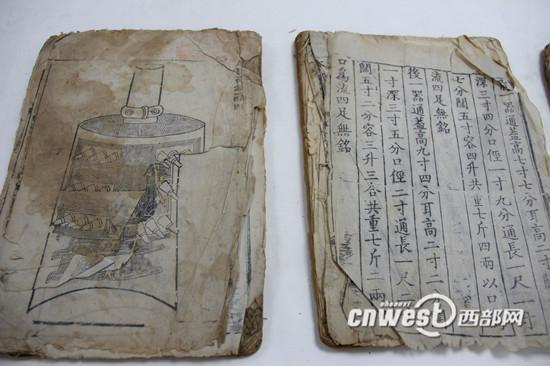 器通蓋高七寸七分耳高二寸
深三寸四分口徑一寸九分通長一尺一寸
七分闊五寸容四升共重七斤四兩以口
流四足無銘
後 器通蓋高九寸四分耳高二寸
一寸深三寸五分口徑二寸通長一尺
闊五寸二分容三升三合共重七斤二兩
口爲流四足無銘
shaanxi
cnwest西部网